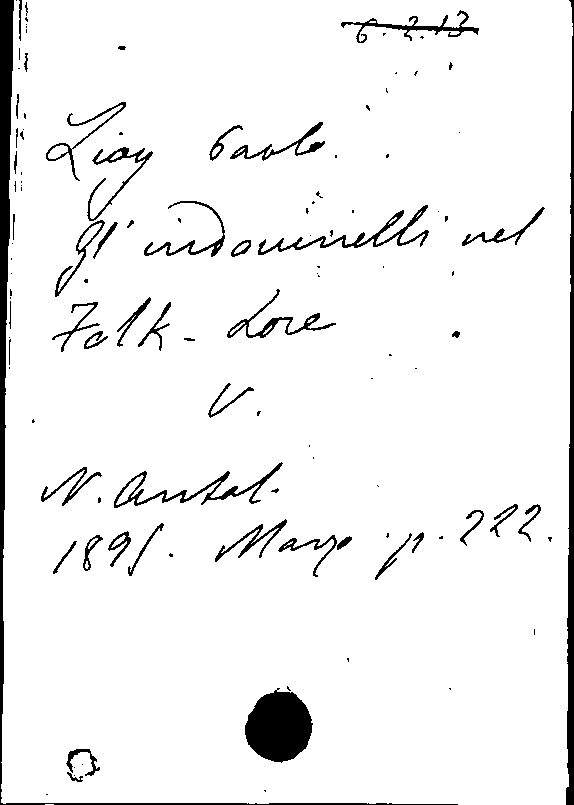 6.2.13
Lioy Paolo.
Gl'indovinelli nel
Folk-Lore
V.
N. Antol.
1895. Marzo p. 222.